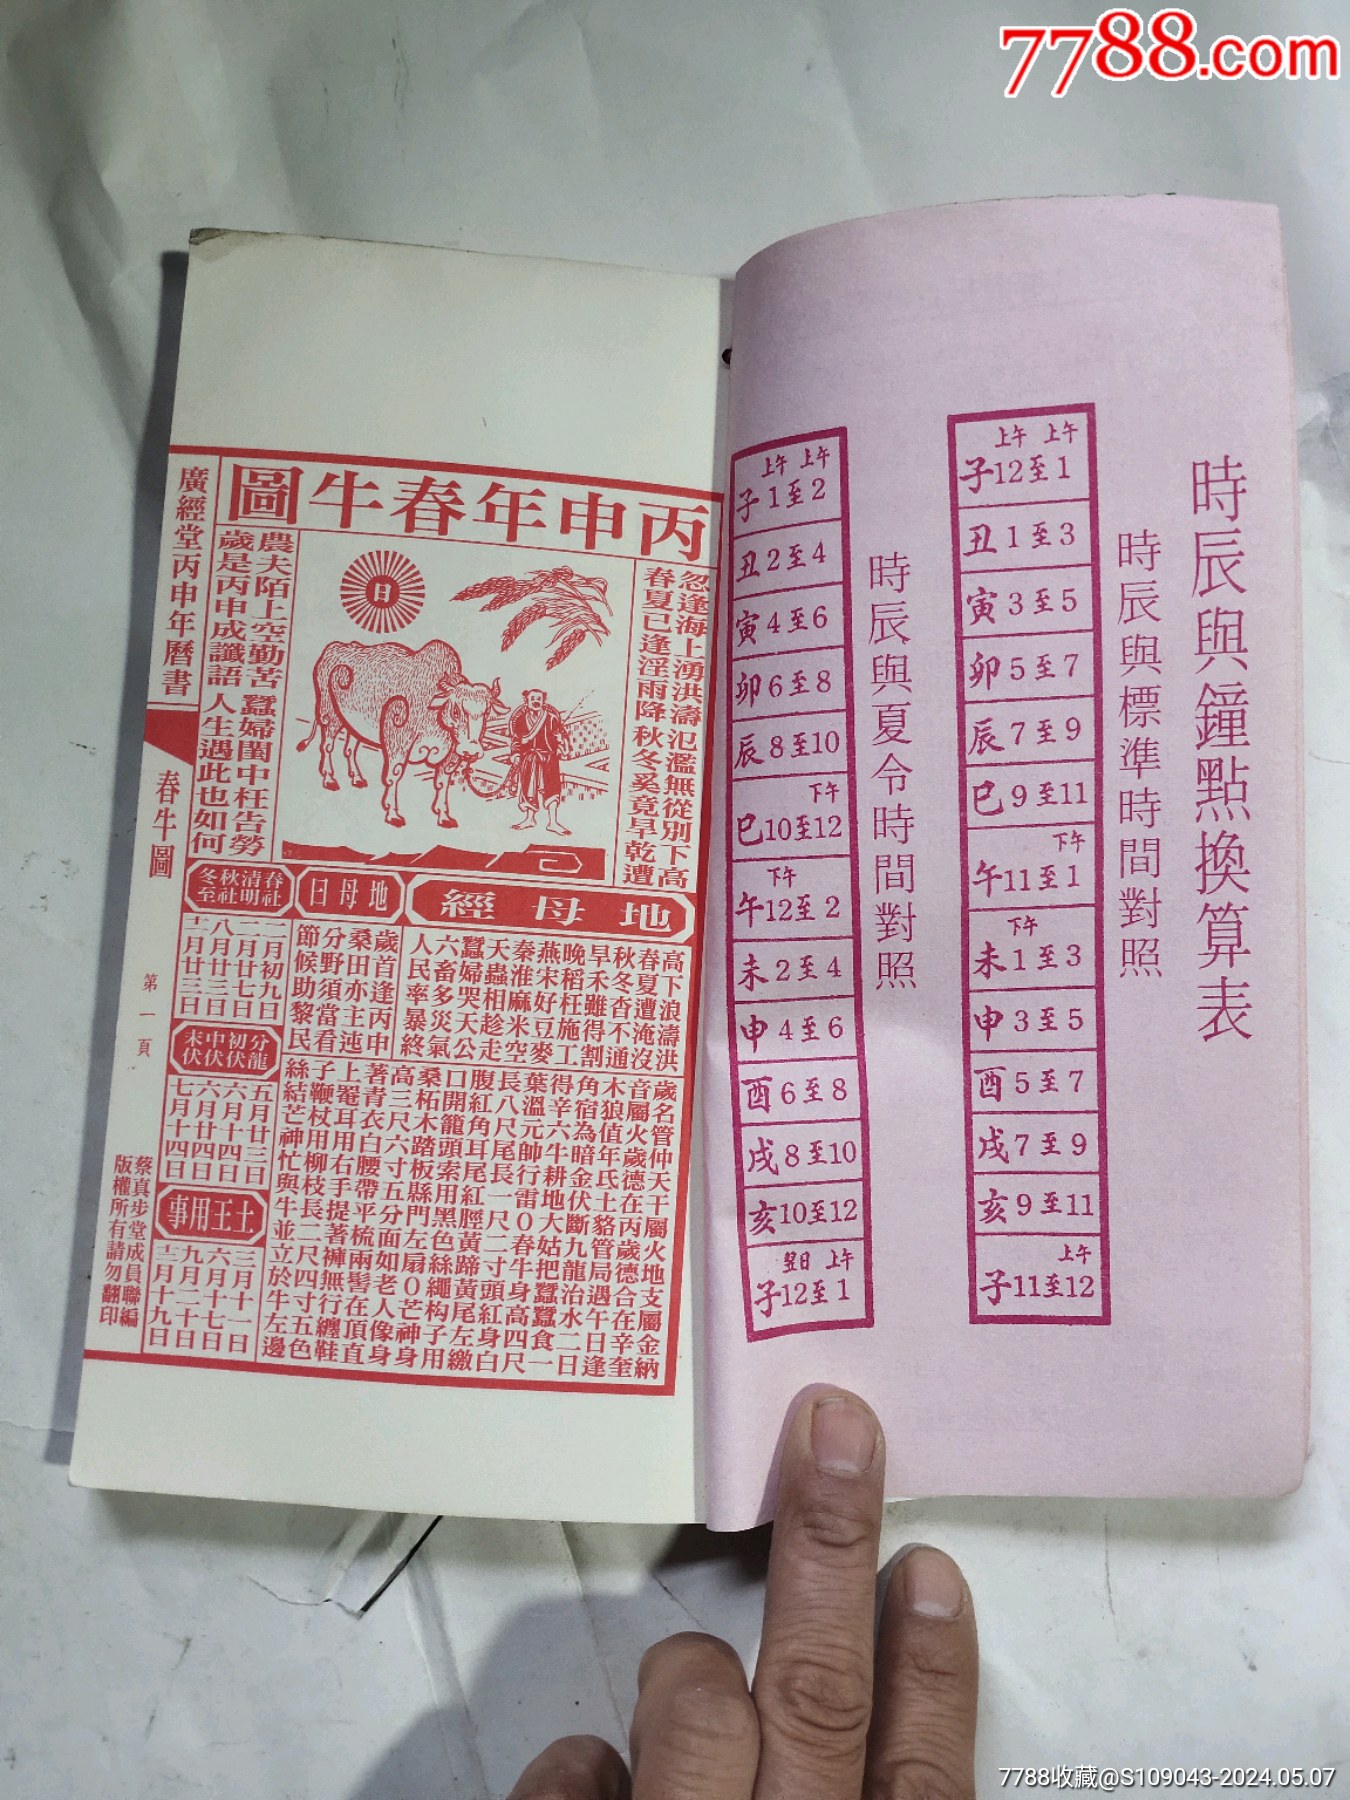 7788.com
時辰與鐘點換算表
時辰與標準時間對照
上午 上午
子12至1
丑1至3
寅3至5
卯5至7
辰7至9
巳9至11
下午
午11至1
下午
未1至3
申3至5
酉5至7
戌7至9
亥9至11
上午
子11至12
時辰與夏令時間對照
上午 上午
子1至2
丑2至4
寅4至6
卯6至8
辰8至10
下午
巳10至12
下午
午12至2
未2至4
申4至6
酉6至8
戌8至10
亥10至12
翌日 上午
子12至1
丙申年春牛圖
忽逢海上湧洪濤氾濫無從別下高
春夏已逢淫雨降秋冬奚竟旱乾遭
日
農夫陌上空勤苦 蠶婦閨中枉告勞
歲是丙申成讖語 人生遇此也如何
地母經
高下浪濤洪
春夏遭淹沒
秋冬杳不通
早禾雖得割
晚稻枉施工
燕宋好豆麥
秦淮麻米空
天蟲相趁走
蠶婦哭天公
六畜多災氣
人民率暴終
地母日
歲首逢丙申
桑田亦主速
分野須當看
節候助黎民
歲名管仲天干屬火地支屬金納
音屬火歲德在丙歲德合在辛奎
木狼值年氏土貉管局遇午日逢
角宿為暗金伏斷九龍治水二日
得辛六牛耕地大姑把蠶蠶食一
葉溫元帥行雷○春牛身高四尺
長八尺尾長一尺二寸頭紅身白
腹紅角耳尾紅脛黃蹄黃尾左繳
口開籠頭索用黑色絲繩构子用
桑柘木踏板縣門左扇○芒神身
高三尺六寸五分面如老人像身
著青衣白腰帶平梳兩髻在頂直
上罨耳用右手提著褲無行纏鞋
子鞭杖用柳枝長二尺四寸五色
絲結芒神忙與牛並立於牛左邊
春社 清明 秋社 冬至
二月初九日
二月廿七日
八月廿三日
十一月廿三日
分龍 初伏 中伏 末伏
五月廿三日
六月十四日
六月廿四日
七月十四日
土王用事
三月十一日
六月十七日
九月二十日
十二月十九日
廣經堂丙申年曆書
春牛圖
第一頁
蔡真步堂成員聯編
版權所有請勿翻印
7788收藏@S109043-2024.05.07